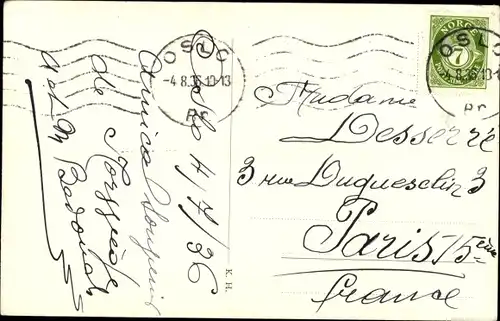 Oslo 4/7/36
Amical Souvenir
de Norvège
OSLO
-4.8.36.13-13
Pr
K. H.
NORGE
7
OSLO
-4.8.36.13-1
pr
Madame
Desserré
3 rue Duguesclin 3
Paris 15ème
France